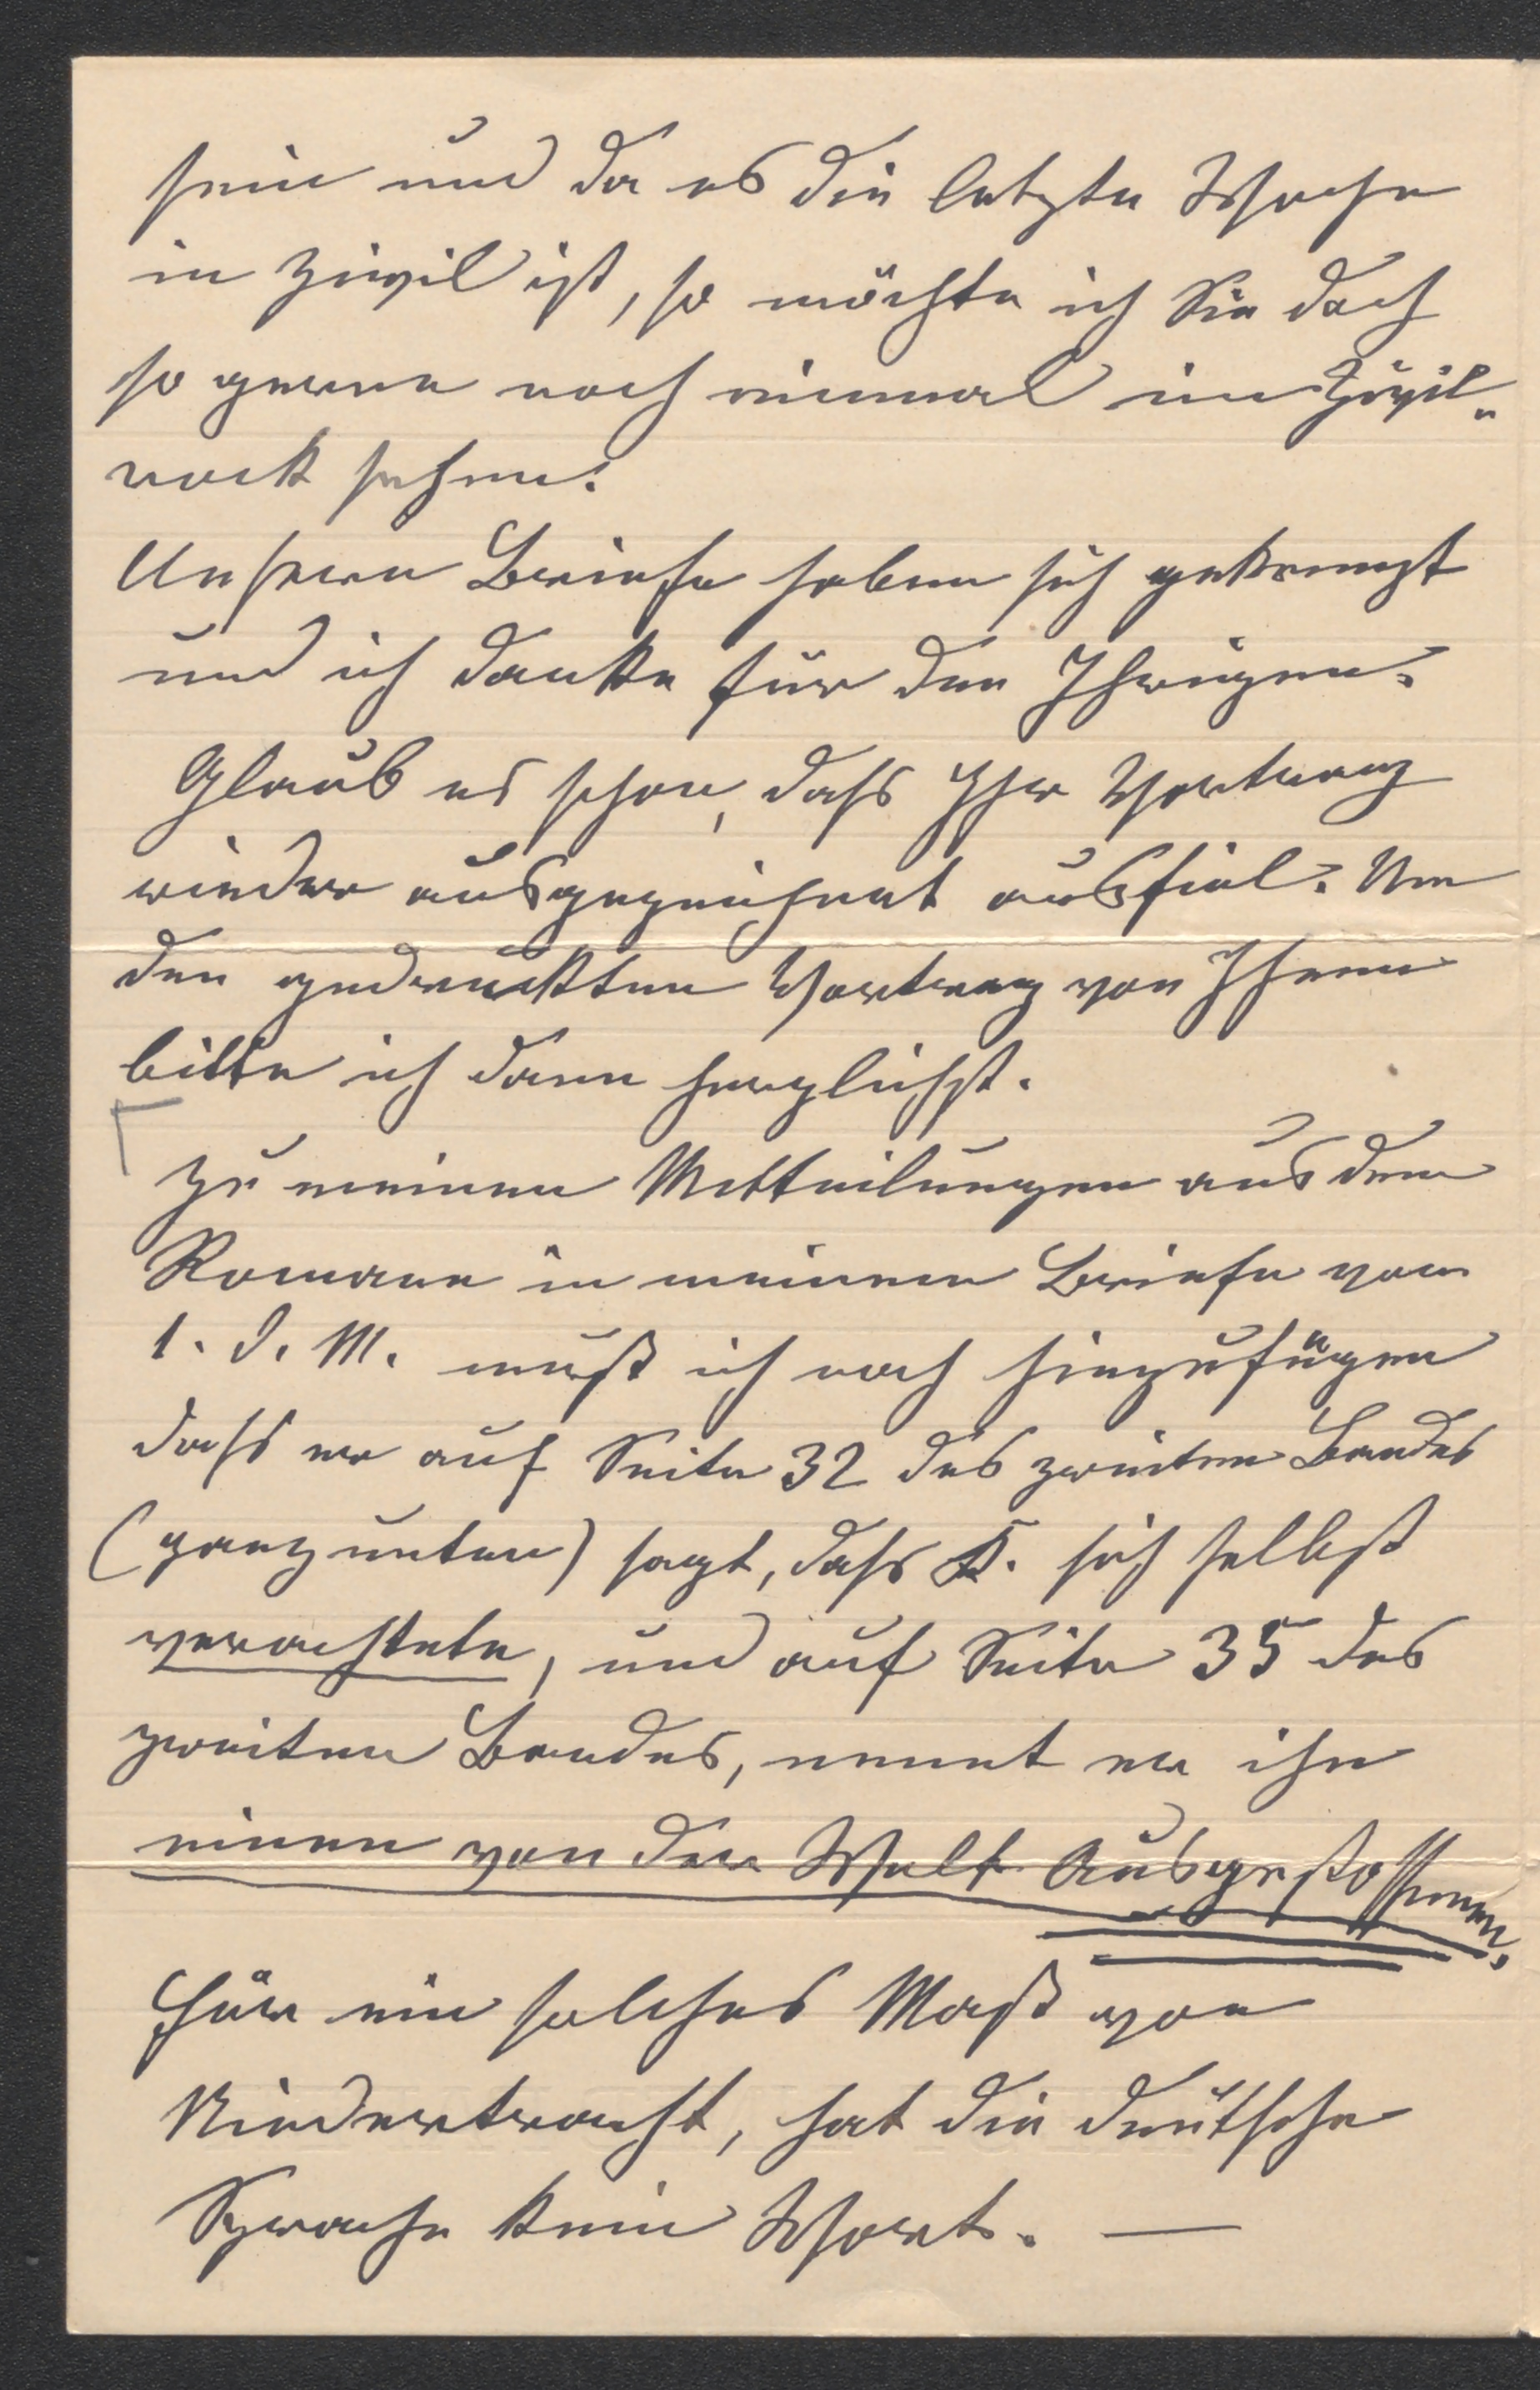 sein und da es die letzte Woche
in Zivil ist, so möchte ich Sie doch
so gerne noch einmal im Zivil-
rock sehen.
Unsere Briefe haben sich gekreuzt
und ich danke für den Ihrigen.
Glaub es schon, dass Ihr Vortrag
wieder ausgezeichnet ausfiel. Um
den gedruckten Vortrag von Ihnen
bitte ich dann herzlichst.
Zu meinen Mitteilungen aus dem
Romane in meinem Briefe vom
1. d. M. muß ich noch hinzufügen
dass er auf Seite 32 des zweiten Bandes
(ganz unten) sagt, dass K. sich selbst
verachtete, und auf Seite 35 des
zweiten Bandes, nennt er ihn
einen von der Welt Ausgestossenen.
Für ein solches Maß von
Niedertracht, hat die deutsche
Sprache kein Wort. —